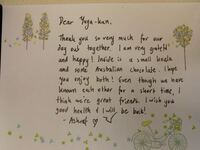 Dear Yuya-kun,
Thank you so very much for our
day out together. I am very grateful
and happy! Inside is a small koala
and some Australian chocolate. I hope
you enjoy both! Even though we have
known each other for a short time, I
think were great friends. I wish you
good health & I will be back!